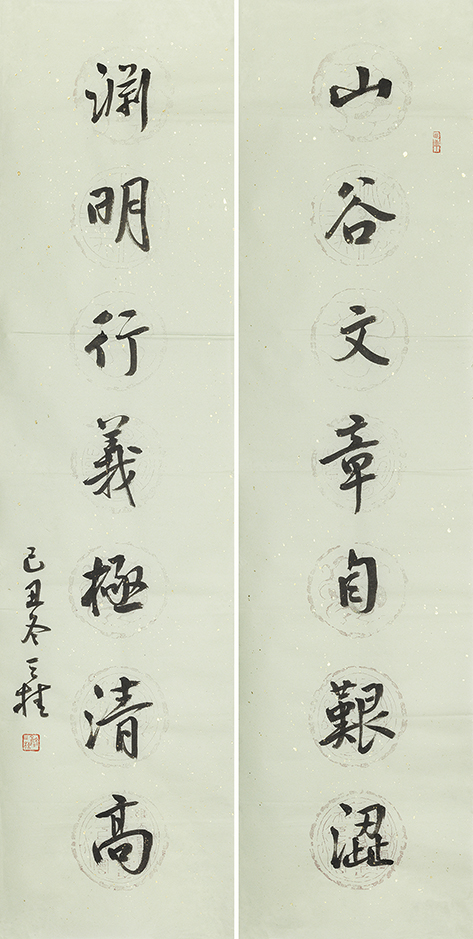 山谷文章自艱澀
渊明行義極清高
己丑冬 天桂